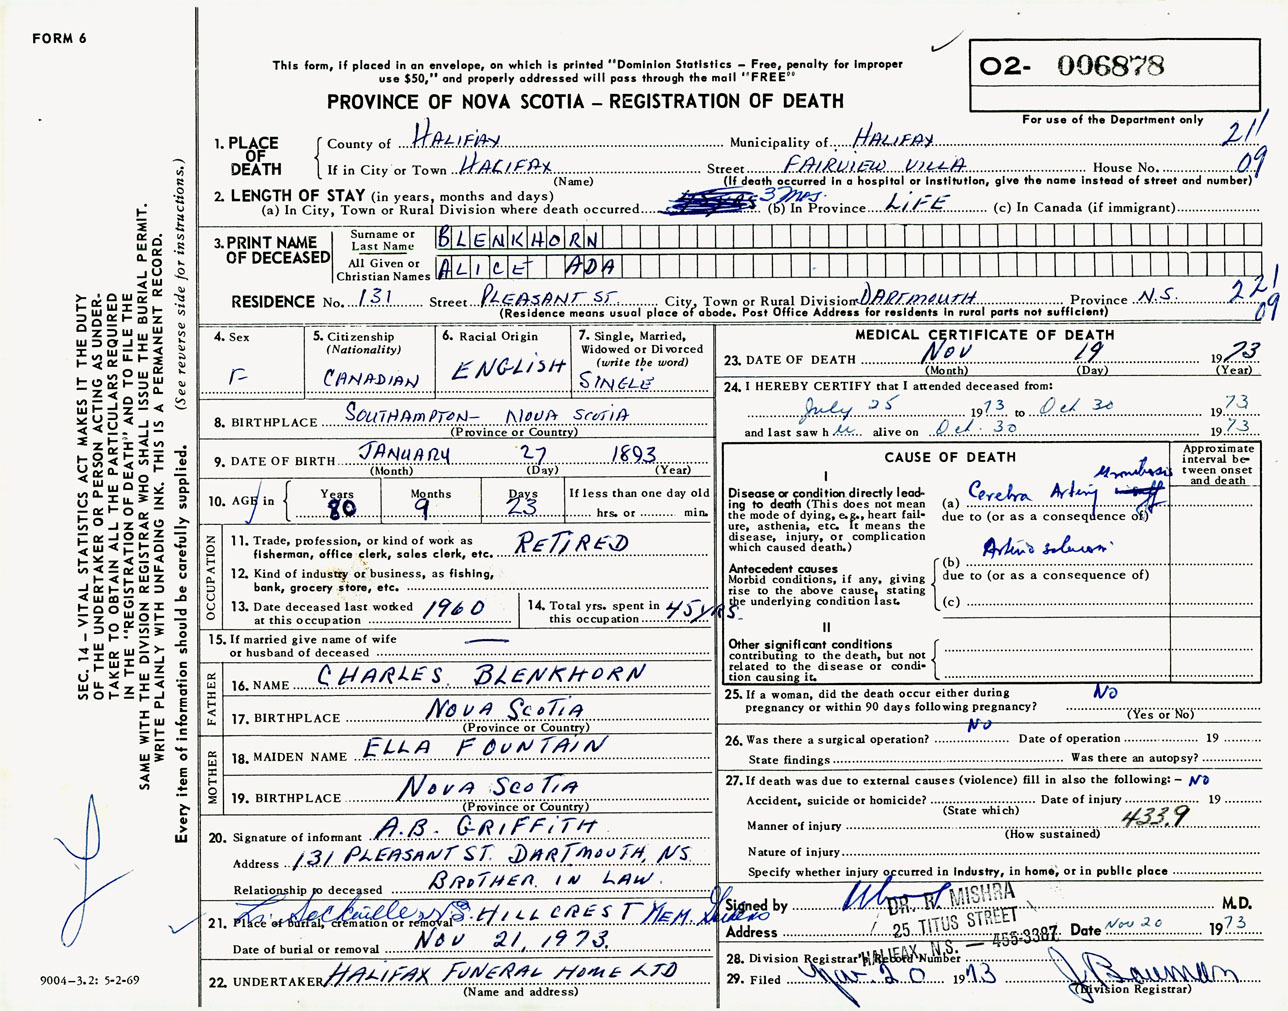 FORM 6
This form, if placed in an envelope, on which is printed "Dominion Statistics – Free, penalty for improper
use $50," and properly addressed will pass through the mail "FREE"
PROVINCE OF NOVA SCOTIA – REGISTRATION OF DEATH
O2- 006878
For use of the Department only
SEC. 14 – VITAL STATISTICS ACT MAKES IT THE DUTY
OF THE UNDERTAKER OR PERSON ACTING AS UNDER-
TAKER TO OBTAIN ALL THE PARTICULARS REQUIRED
IN THE "REGISTRATION OF DEATH" AND TO FILE THE
SAME WITH THE DIVISION REGISTRAR WHO SHALL ISSUE THE BURIAL PERMIT.
WRITE PLAINLY WITH UNFADING INK. THIS IS A PERMANENT RECORD.
Every item of information should be carefully supplied. (See reverse side for instructions.)
1. PLACE OF DEATH
County of HALIFAX Municipality of HALIFAX 211
If in City or Town HALIFAX Street FAIRVIEW VILLA House No. 09
(Name) (If death occurred in a hospital or institution, give the name instead of street and number)
2. LENGTH OF STAY (in years, months and days)
(a) In City, Town or Rural Division where death occurred 3 Mos. (b) In Province LIFE (c) In Canada (if immigrant)
3. PRINT NAME OF DECEASED
Surname or Last Name BLENKHORN
All Given or Christian Names ALICE ADA
RESIDENCE No. 131 Street PLEASANT ST. City, Town or Rural Division DARTMOUTH Province N.S. 221 09
(Residence means usual place of abode. Post Office Address for residents in rural parts not sufficient)
4. Sex F
5. Citizenship (Nationality) CANADIAN
6. Racial Origin ENGLISH
7. Single, Married, Widowed or Divorced (write the word) SINGLE
8. BIRTHPLACE SOUTHAMPTON – NOVA SCOTIA
(Province or Country)
9. DATE OF BIRTH JANUARY 27 1893
(Month) (Day) (Year)
10. AGE in Years 80 Months 9 Days 23 If less than one day old hrs. or min.
OCCUPATION
11. Trade, profession, or kind of work as RETIRED
fisherman, office clerk, sales clerk, etc.
12. Kind of industry or business, as fishing,
bank, grocery store, etc.
13. Date deceased last worked at this occupation 1960
14. Total yrs. spent in this occupation 45 YRS.
15. If married give name of wife or husband of deceased —
FATHER
16. NAME CHARLES BLENKHORN
17. BIRTHPLACE NOVA SCOTIA
(Province or Country)
MOTHER
18. MAIDEN NAME ELLA FOUNTAIN
19. BIRTHPLACE NOVA SCOTIA
(Province or Country)
20. Signature of informant A.B. GRIFFITH
Address 131 PLEASANT ST. DARTMOUTH, NS
Relationship to deceased BROTHER IN LAW.
21. Place of burial, cremation or removal Sackville N.S. HILLCREST MEM. Gardens
Date of burial or removal NOV 21, 1973.
22. UNDERTAKER HALIFAX FUNERAL HOME LTD
(Name and address)
9004-3.2: 5-2-69
MEDICAL CERTIFICATE OF DEATH
23. DATE OF DEATH NOV 19 1973
(Month) (Day) (Year)
24. I HEREBY CERTIFY that I attended deceased from:
July 25 1973 to Oct 30 1973
and last saw h er alive on Oct. 30 1973
CAUSE OF DEATH
Approximate interval between onset and death
I
Disease or condition directly lead-
ing to death (This does not mean
the mode of dying, e.g., heart fail-
ure, asthenia, etc. It means the
disease, injury, or complication
which caused death.)
(a) Cerebra Artery thrombosis
due to (or as a consequence of)
Antecedent causes
Morbid conditions, if any, giving
rise to the above cause, stating
the underlying condition last.
(b)
due to (or as a consequence of)
(c)
II
Other significant conditions
contributing to the death, but not
related to the disease or condi-
tion causing it.
25. If a woman, did the death occur either during NO
pregnancy or within 90 days following pregnancy?
(Yes or No)
26. Was there a surgical operation? NO Date of operation 19
State findings Was there an autopsy?
27. If death was due to external causes (violence) fill in also the following: – NO
Accident, suicide or homicide? Date of injury 19
(State which)
Manner of injury 433.9
(How sustained)
Nature of injury
Specify whether injury occurred in Industry, in home, or in public place
Signed by M.D.
DR. R. MISHRA
25 TITUS STREET
HALIFAX, N.S. – 455-3387
Address Date Nov 20 1973
28. Division Registrar's Record Number
29. Filed Nov. 20 1973 J Bauman
(Division Registrar)